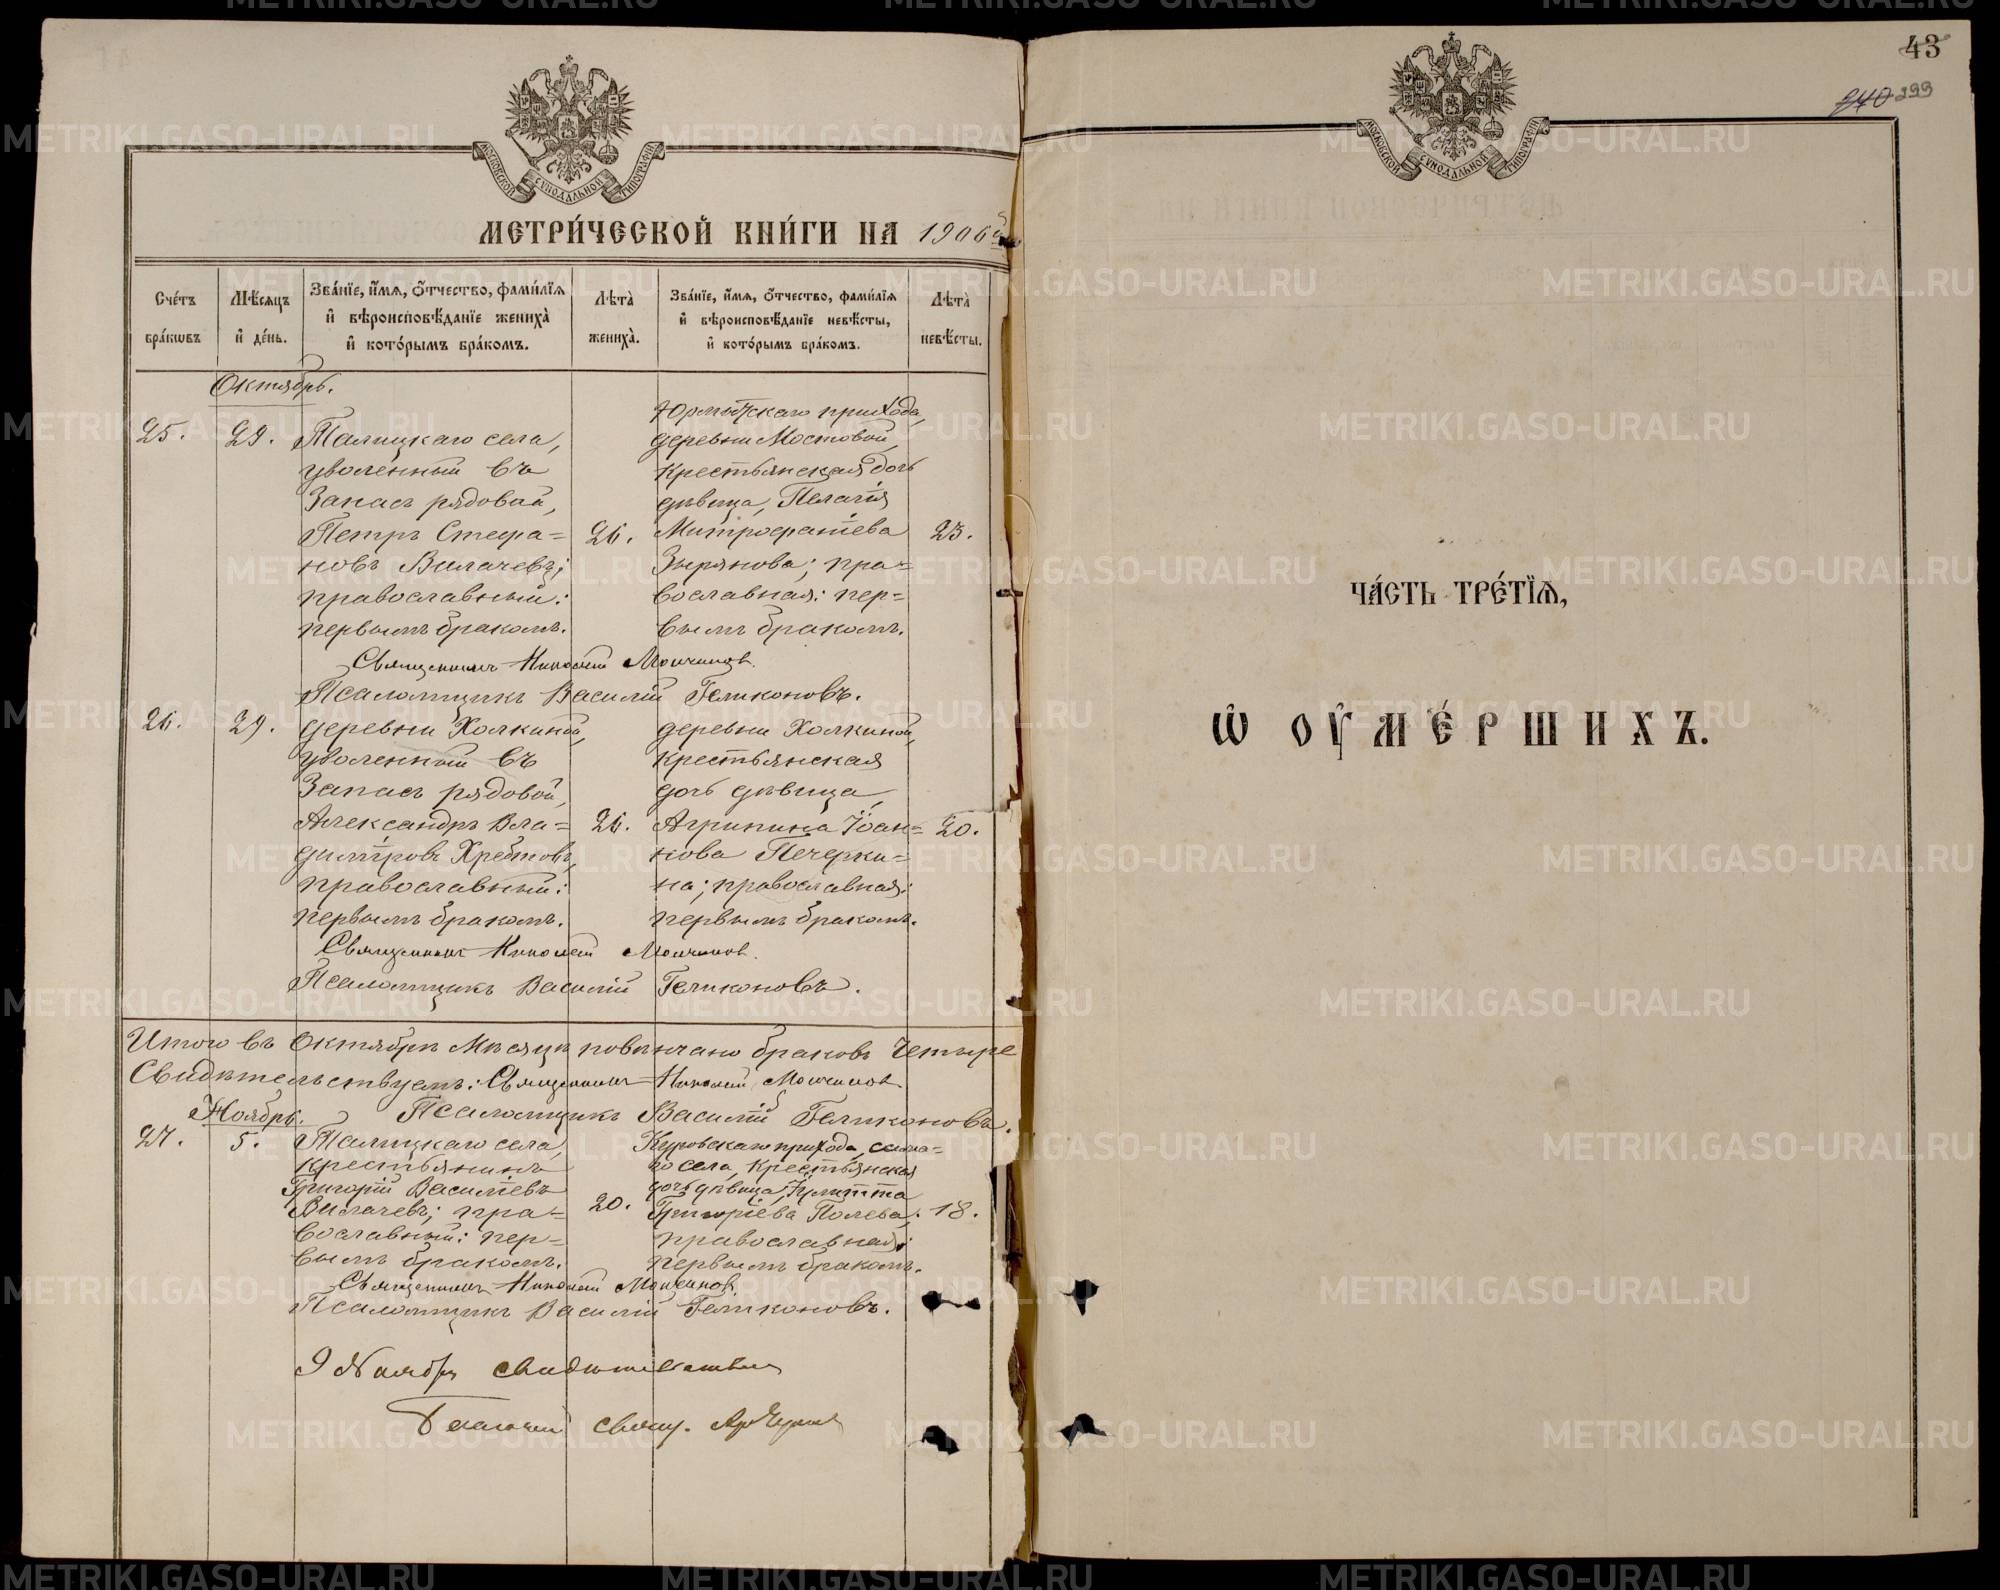 МЕТРИ́ЧЕСКОЙ КНИ́ГИ НА 1906
Сче́тъ бра́кѡвъ
Мѣ́сѧцъ и҆ де́нь.
Зва́нїе, и҆́мѧ, ѻ҆́тчество, фами́лїѧ и҆ вѣроисповѣ́данїе жениха̀ и҆ кото́рымъ бра́комъ.
Лѣта̀ жениха̀.
Зва́нїе, и҆́мѧ, ѻ҆́тчество, фами́лїѧ и҆ вѣроисповѣ́данїе невѣ́сты, и҆ кото́рымъ бра́комъ.
Лѣта̀ невѣ́сты.
Октябрь.
25. 29.
Талицкаго села,
уволенный въ
Запасъ рядовой,
Петръ Стефа=
новъ Вилачевъ;
православный:
первымъ бракомъ.
26.
Юрмытскаго прихода,
деревни Мостовой,
крестьянская дочь
дѣвица, Пелагія
Митрофанiева
Зырянова; пра=
вославная: пер=
вымъ бракомъ.
23.
Священникъ Николай
Псаломщикъ Василій Геликоновъ.
26. 29.
деревни Холкиной,
уволенный въ
Запасъ рядовой,
Александръ Вла=
диміровъ Хребтовъ,
православный:
первымъ бракомъ.
26.
деревни Холкиной,
крестьянская
дочь дѣвица,
Агрипина Іоан=
нова Печерки=
на; православная:
первымъ бракомъ.
20.
Священникъ Николай
Псаломщикъ Василій Геликоновъ.
Итого въ Октябрѣ Мѣсяцѣ повѣнчано браковъ Четыре
Свидѣтельствуемъ: Священникъ Николай
Псаломщикъ Василій Геликоновъ.
Ноябрь.
27. 5.
Талицкаго села,
крестьянинъ
Григорій Василіевъ
Вилачевъ; пра=
вославный: пер=
вымъ бракомъ.
20.
прихода, сего=
го села, крестьянская
дочь дѣвица, Іулитта
Григоріева Полева;
православная;
первымъ бракомъ.
18.
Священникъ Николай
Псаломщикъ Василій Геликоновъ.
9 Ноябр
свящ.
МОСКОВСКОЙ СѴНОДАЛЬНОЙ ТИПОГРАФІИ
43
240 299
МОСКОВСКОЙ СѴНОДАЛЬНОЙ ТИПОГРАФІИ
ЧА́СТЬ ТРЕ́ТЇѦ,
Ѡ҆ ОУ҆МЕ́РШИХЪ.
METRIKI.GASO-URAL.RU